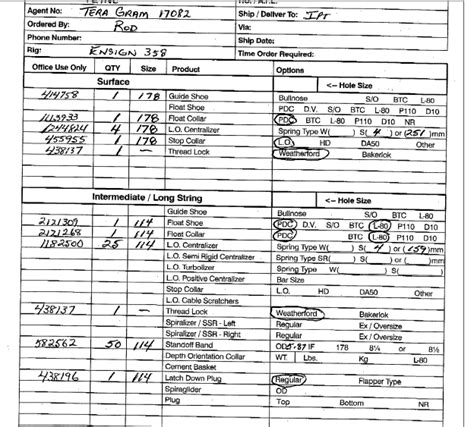 Agent No: TERA GRAM 17082 Ship / Deliver To: IPT
Ordered By: ROD Via:
Phone Number: Ship Date:
Rig: ENSIGN 358 Time Order Required:
Office Use Only QTY Size Product Options
Surface <-- Hole Size
414758 1 178 Guide Shoe Bullnose S/O BTC L-80
Float Shoe PDC D.V. S/O BTC L-80 P110 D10
1 178 Float Collar PDC BTC L-80 P110 D10 NR
1244824 4 178 L.O. Centralizer Spring Type W( ) S( 4 ) or ( 251 )mm
455955 1 178 Stop Collar L.O. HD DA50 Other
438137 1 — Thread Lock Weatherford Bakerlok
Intermediate / Long String <-- Hole Size
Guide Shoe Bullnose S/O BTC L-80
2121309 1 114 Float Shoe PDC D.V. S/O BTC L-80 P110 D10
2121268 1 114 Float Collar PDC BTC L-80 P110 D10
1182500 25 114 L.O. Centralizer Spring Type W( ) S( 4 ) or ( 159 )mm
L.O. Semi Rigid Centralizer Spring Type SR( ) S( ) or ( )mm
L.O. Turbolizer Spring Type W( ) S( )
L.O. Positive Centralizer Bar Size
Stop Collar L.O. HD DA50 Other
L.O. Cable Scratchers
438137 1 — Thread Lock Weatherford Bakerlok
Spiralizer / SSR - Left Regular Ex / Oversize
Spiralizer / SSR - Right Regular Ex / Oversize
582562 50 114 Standoff Band 178 8¼ or 8½
Depth Orientation Collar WT. Lbs. Kg L-80
Cement Basket
438196 1 114 Latch Down Plug Regular Flapper Type
Spiraglider OD
Plug Top Bottom NR